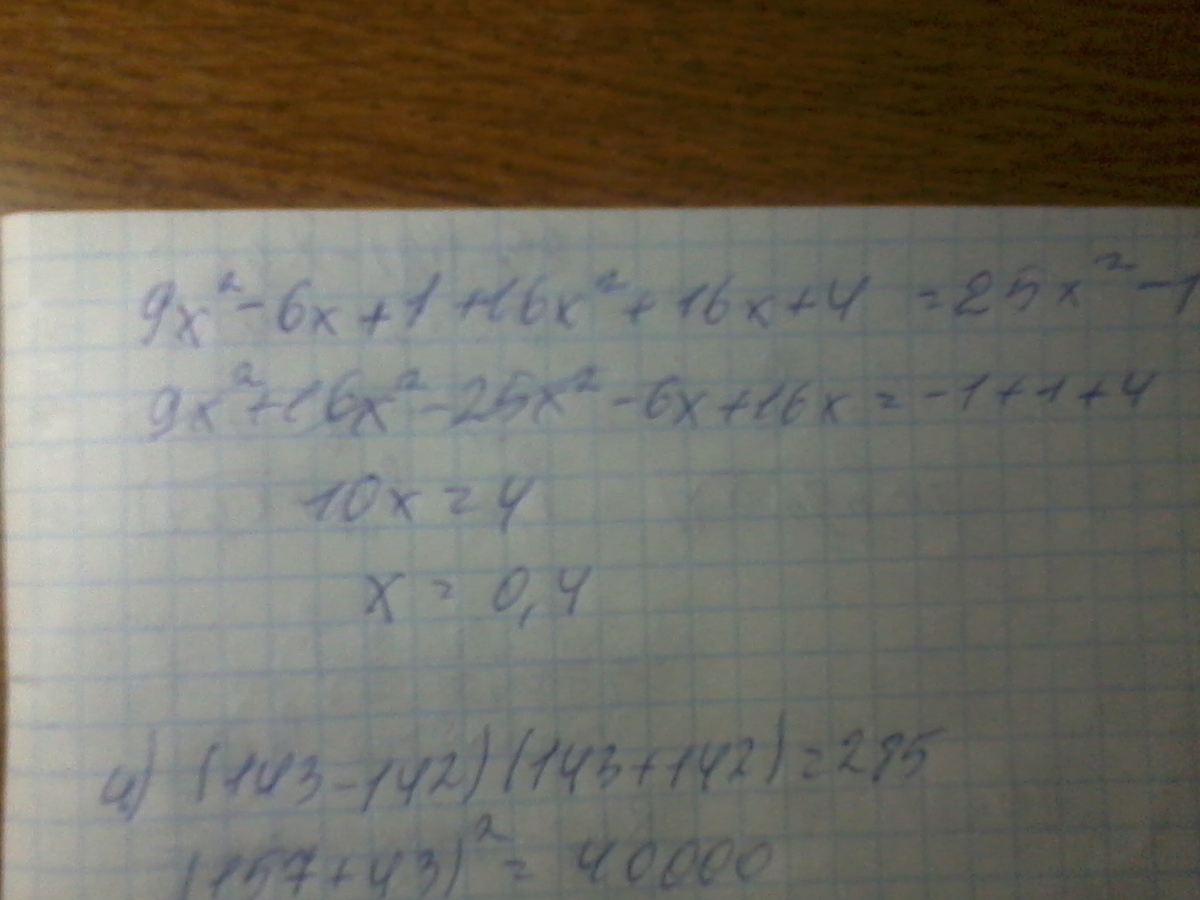 9x² - 6x + 1 + 16x² + 16x + 4 = 25x² - 1
9x² + 16x² - 25x² - 6x + 16x = -1 + 1 + 4
10x = 4
x = 0,4
4) (143 - 142)(143 + 142) = 285
(157 + 43)² = 40000